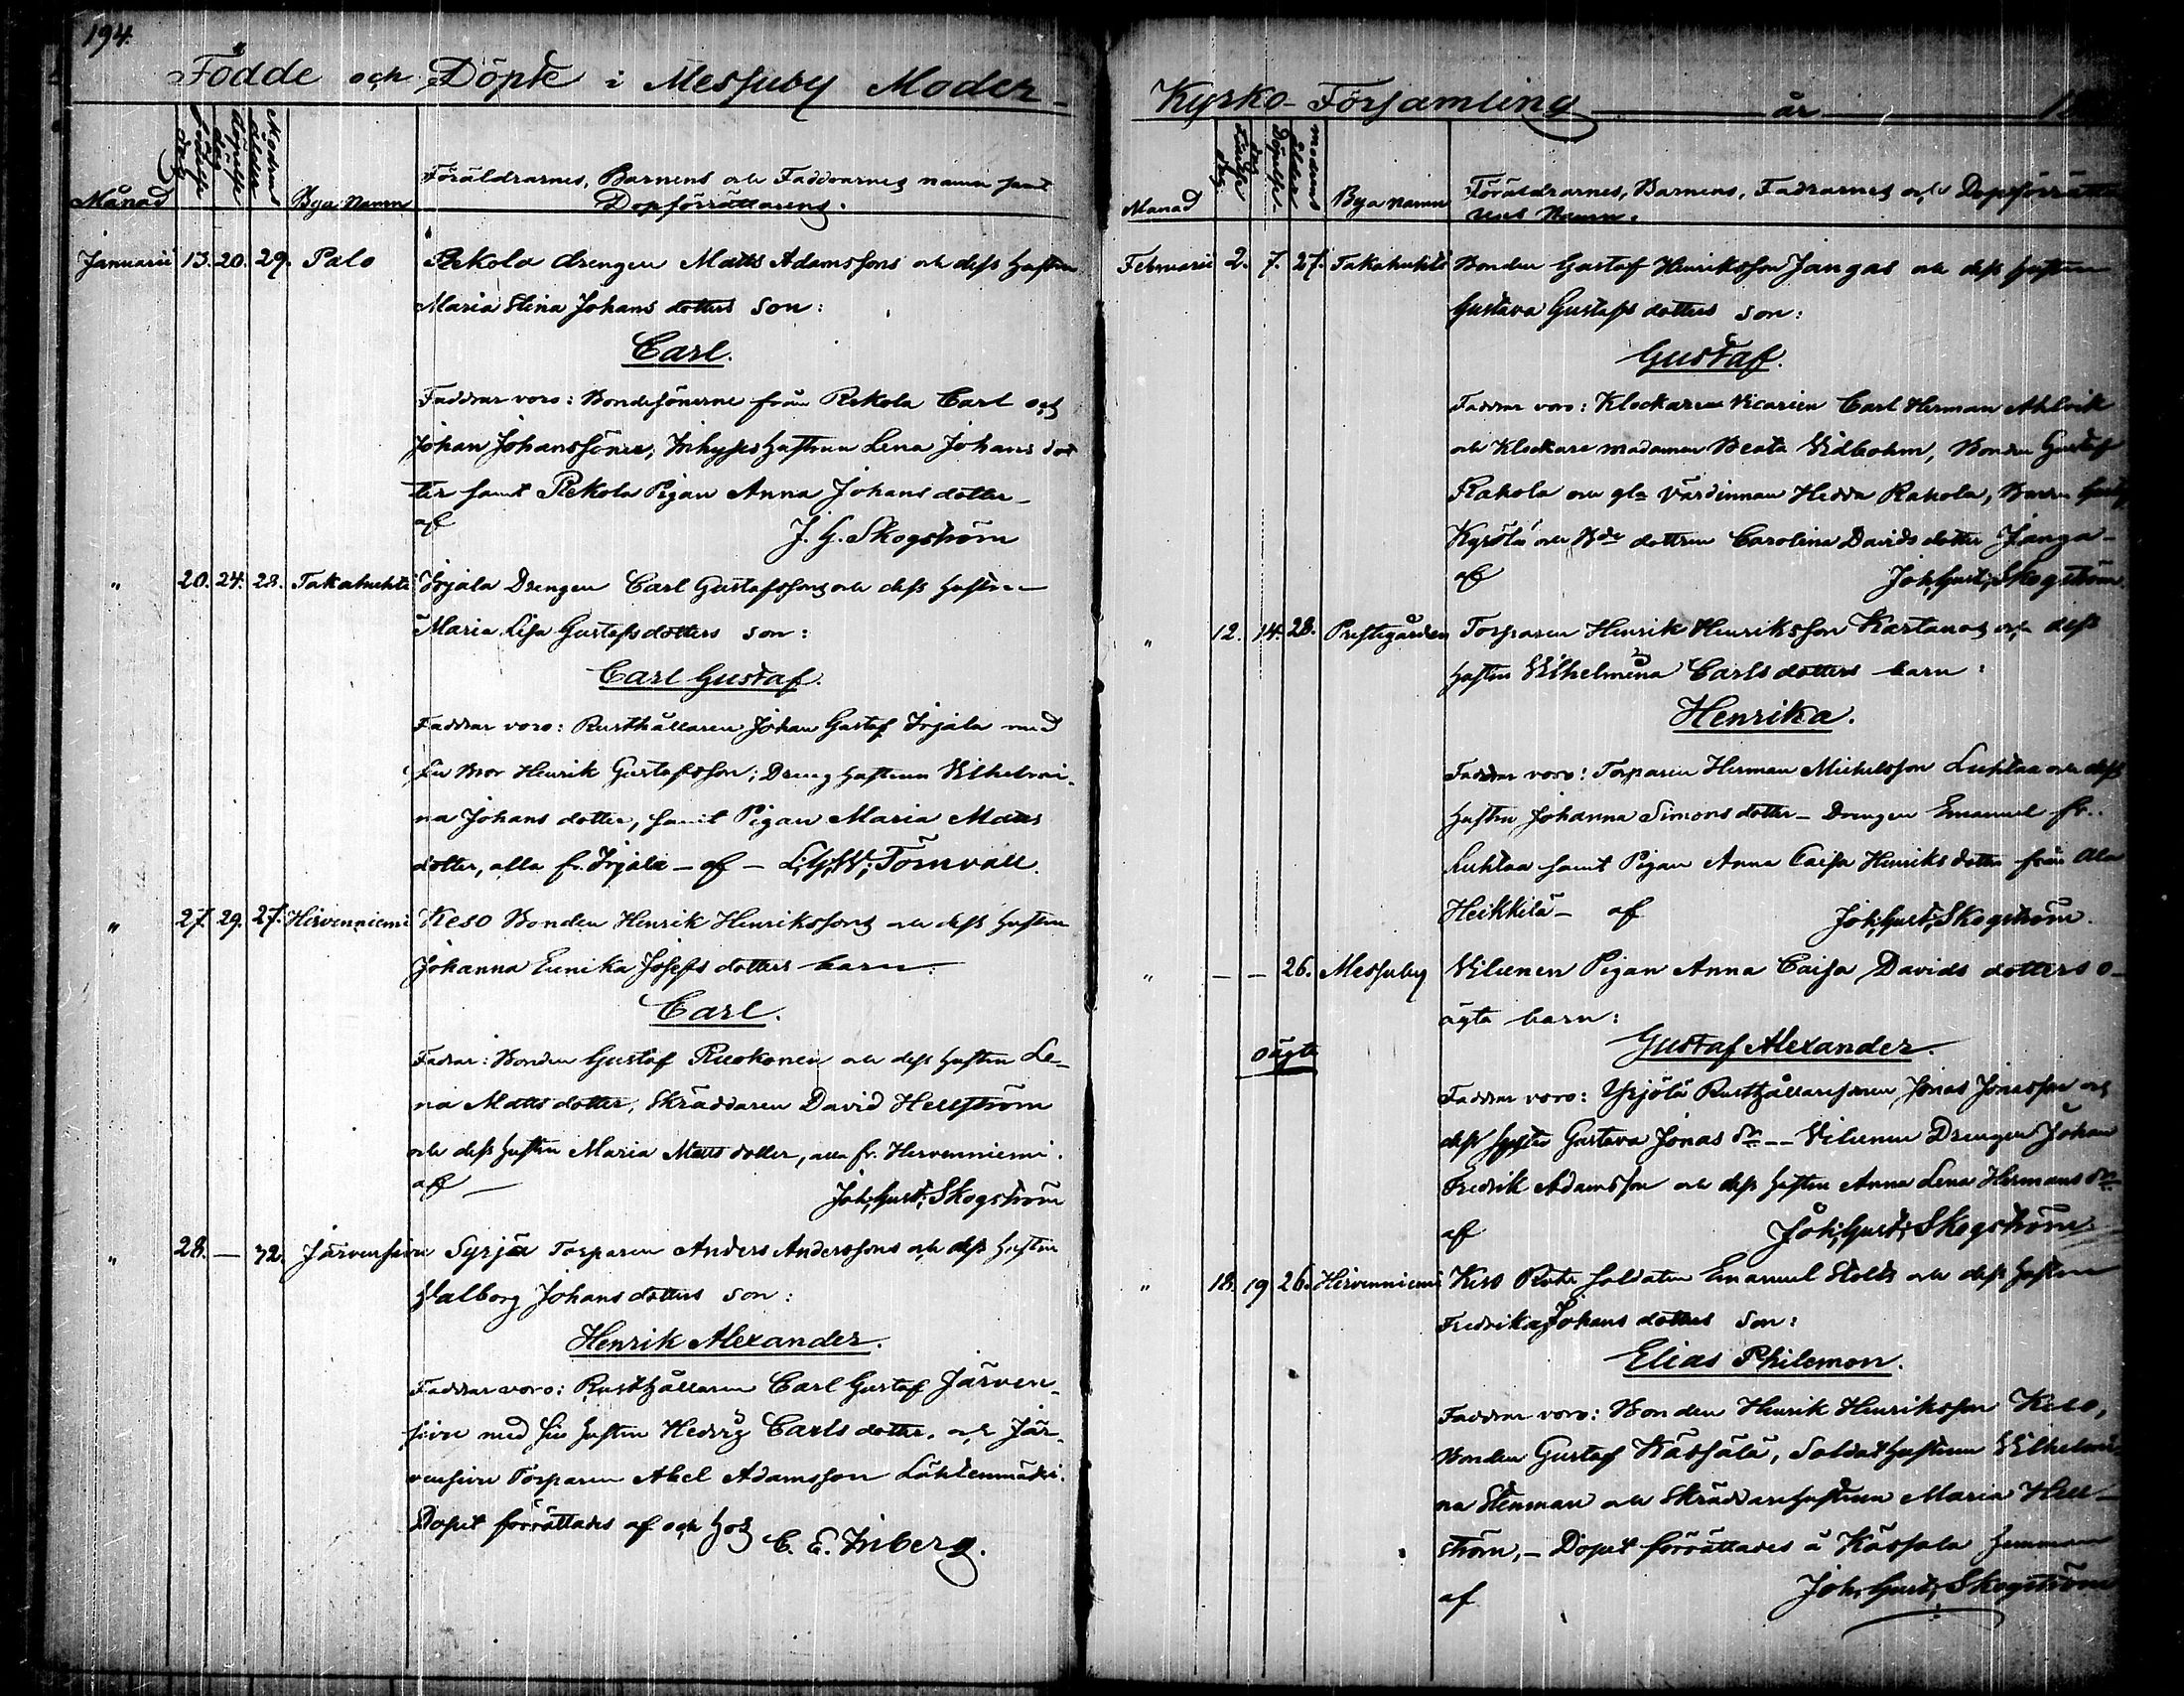 194.
Födde och Döpte i Messuby Moder-
Månad Födelse dag Döpelse dag Modrens ålder Bya Namn Föräldrarnes, Barnens och Faddrarnes namn samt
Dopförrättarens.
Januarii 13. 20. 29. Palo Rekola drengen Matts Adamssons och dess hustru
Maria Stina Johans dotters son:
Carl.
Faddrar voro: Bondesönerne från Rekola Carl och
Johan Johanssöner, Inhyses hustrun Lena Johans dot
ter samt Rekola Pigan Anna Johans dotter -
af J. G. Skogström
" 20. 24. 28. Takahuhti Irjala Drengen Carl Gustafssons och dess hustru
Maria Lisa Gustafsdotters son:
Carl Gustaf.
Faddrar voro: Rusthållaren Johan Gustaf Irjala med
sin Bror Henrik Gustafsson; Dreng hustrun Vilhelmi-
na Johans dotter, samt Pigan Maria Matts
dotter, alla fr. Irjala - af - Törnvall.
" 27. 29. 27. Hirvenniemi Keso Bonden Henrik Henrikssons och dess hustru
Johanna Eunika Josefs dotters barn:
Carl.
Fadrar: Bonden Gustaf Ruokonen och dess hustru Le-
na Matts dotter, Skräddaren David Hellström
och dess hustru Maria Matts dotter, alla fr. Hirvenniemi.
af - Joh: Gust: Skogström
" 28. — 42. Järvensivu Syrjä Torparen Anders Anderssons och dess hustru
Valborg Johans dotters son:
Henrik Alexander.
Faddrar voro: Rusthållaren Carl Gustaf Järven-
sivu med sin hustru Hedvig Carls dotter, och Jär-
vensivu Torparen Abel Adamsson
Dopet förrättades af och hos C. E. Inberg.
Kyrko-Församling år
Månad Födelse dag Döpelse dag modrens ålder Bya namn Föräldrarnes, Barnens, Fadrarnes och Dopförrätta
res Namn.
Februarii 2. 7. 27. Takahuhti Bonden Gustaf Henriksson Jangas och dess hustru
Gustava Gustafs dotters son:
Gustaf.
Fadrar voro: Klockaren Vicarien Carl Herman Ahlvik
och Klockare madamen Beata Vidbohm, Bonden Gustaf
Rahola och gla värdinnan Hedda Rahola, Bonden
Kyrölä och Bde dottren Carolina Davids dotter Janga-
af Joh: Gust: Skogström
" 12. 14. 28. Prestegården Torparen Henrik Henriksson Kartanos och dess
hustru Vilhelmina Carls dotters barn:
Henrika.
Faddrar voro: Torparen Herman Michelsson Luhtaa och dess
hustru Johanna Simons dotter - Drengen Emanuel fr.
Luhtaa samt Pigan Anna Caisa Henriks dotter från Ala
Heikkilä - af Joh: Gust: Skogström.
" — — 26. Messuby Vilunen Pigan Anna Caisa Davids dotters o-
ägta barn:
oägta Gustaf Alexander.
Faddrar voro: Yrjölä Rusthållaresonen Jonas Jonasson och
dess syster Gustava Jonas dr -- Vilunen Drengen Johan
Fredrik Adamsson och dess hustru Anna Lena Hermans dr -
af Joh: Gust: Skogström
" 18. 19 26. Hirvenniemi Keso Rote soldaten Emanuel Stolts och dess hustru
Fredrika Johans dotters son:
Elias Philemon.
Faddrar voro: Bonden Henrik Henriksson Keso,
Bonden Gustaf Kässälä, Soldat hustrun Vilhelmi
na Stenman och Skräddarehustrun Maria Hell-
ström, - Dopet förrättades å Kässälä hemman
af Joh: Gust: Skogström